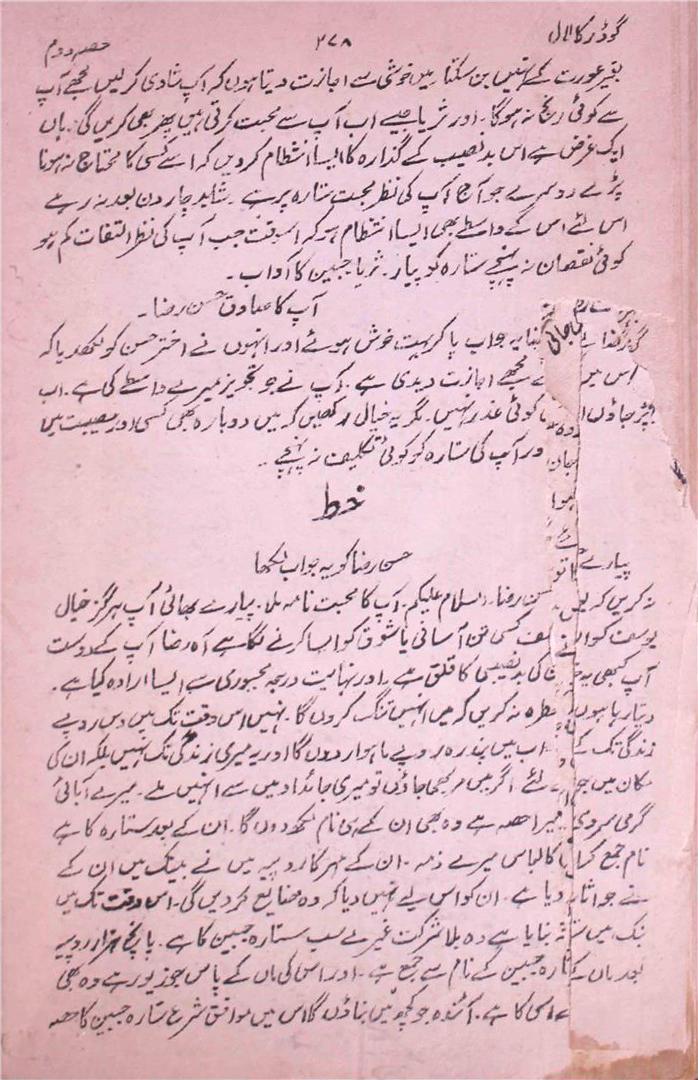 گوڈر کا لال ۲۷۸ حصہ دوم
بغیر عورت کے نہیں بن سکتا۔ میں خوشی سے اجازت دیتا ہوں کہ آپ شادی کر لیں مجھے آپ
سے کوئی رنج نہ ہوگا۔ اور ثریا جیسے اب آپ سے محبت کرتی ہیں پھر بھی کریں گی۔ ہاں
ایک عرض ہے اس بدنصیب کے گذارہ کا ایسا انتظام کر دیں کہ اسے کسی کا محتاج نہ ہونا
پڑے دوسرے جو آج آپ کی نظر محبت ستارہ پر ہے۔ شاید چار دن بعد نہ رہے
اس لئے اس کے واسطے بھی ایسا انتظام ہو کہ اسوقت جب آپ کی نظر التفات کم ہو
کوئی نقصان نہ پہنچے ستارہ کو پیار۔ ثریا جبین کا آداب۔
آپ کا صادق حسن رضا۔
یہ جواب پا کر بہت خوش ہوئے اور انہوں نے اختر حسن کو لکھدیا کہ
اس میں مجھے اجازت دیدی ہے۔ آپ نے جو تجویز میرے واسطے کی ہے۔ اب
کوئی عذر نہیں۔ مگر یہ خیال رکھیں کہ میں دوبارہ بھی کسی اور مصیبت میں
اور آپ کی ستارہ کو کوئی تکلیف نہ پہنچے۔
خط
حسن رضا کو یہ جواب لکھا
پیارے
حسن رضا۔ السلام علیکم۔ آپ کا محبت نامہ ملا۔ پیارے بھائی آپ ہرگز خیال
نہ کریں کہ یوسف کسی تن آسانی یا شوق کو ایسا کرنے لگا ہے آہ رضا آپ کے دوست
کی بدنصیبی کا قلق ہے۔ اور نہایت درجہ مجبوری سے ایسا ارادہ کیا ہے۔
آپ کبھی یہ خطرہ نہ کریں کہ میں انہیں تنگ کروں گا۔ نہیں اس وقت تک میں دس روپے
دیتا رہا ہوں اب میں پندرہ روپے ماہوار دوں گا اور یہ میری زندگی تک نہیں بلکہ ان کی
زندگی تک کے لئے اگر میں مر بھی جاؤں تو میری جائداد میں سے انہیں ملے۔ میرے آبائی
مکان میں جو میرا حصہ ہے وہ بھی ان کے ہی نام لکھ دوں گا۔ ان کے بعد ستارہ کا ہے
گرمی سردی کا لباس میرے ذمہ۔ ان کے مہر کا روپیہ میں نے بینک میں ان کے
نام جمع کرا دیا ہے۔ ان کو اس لیے نہیں دیا کہ وہ ضایع کر دیں گی۔ اس وقت تک میں
نے جو اثاثہ بنایا ہے وہ بلا شرکت غیرے سب ستارہ جبین کا ہے۔ پانچ ہزار روپیہ
بنک میں ستارہ جبین کے نام سے جمع ہے۔ اور اس کی ماں کے پاس جو زیور ہے وہ بھی
بعد ماں کے اسی کا ہے۔ آئندہ جو کچھ میں بناؤں گا اس میں موافق شرع ستارہ جبین کا حصہ